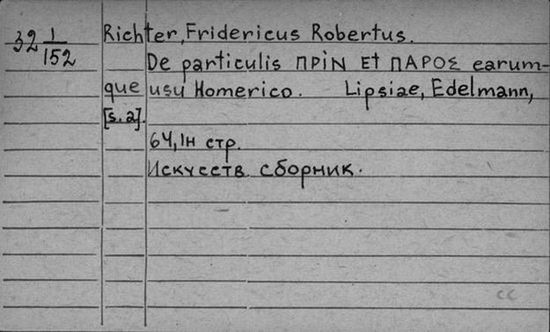 32 1/152
Richter, Fridericus Robertus.
De particulis ΠΡὶΝ Et ΠΑΡΟΣ earum-
que usu Homerico. Lipsiae, Edelmann,
[s.a].
64,1н стр.
Искусств. сборник.
cc